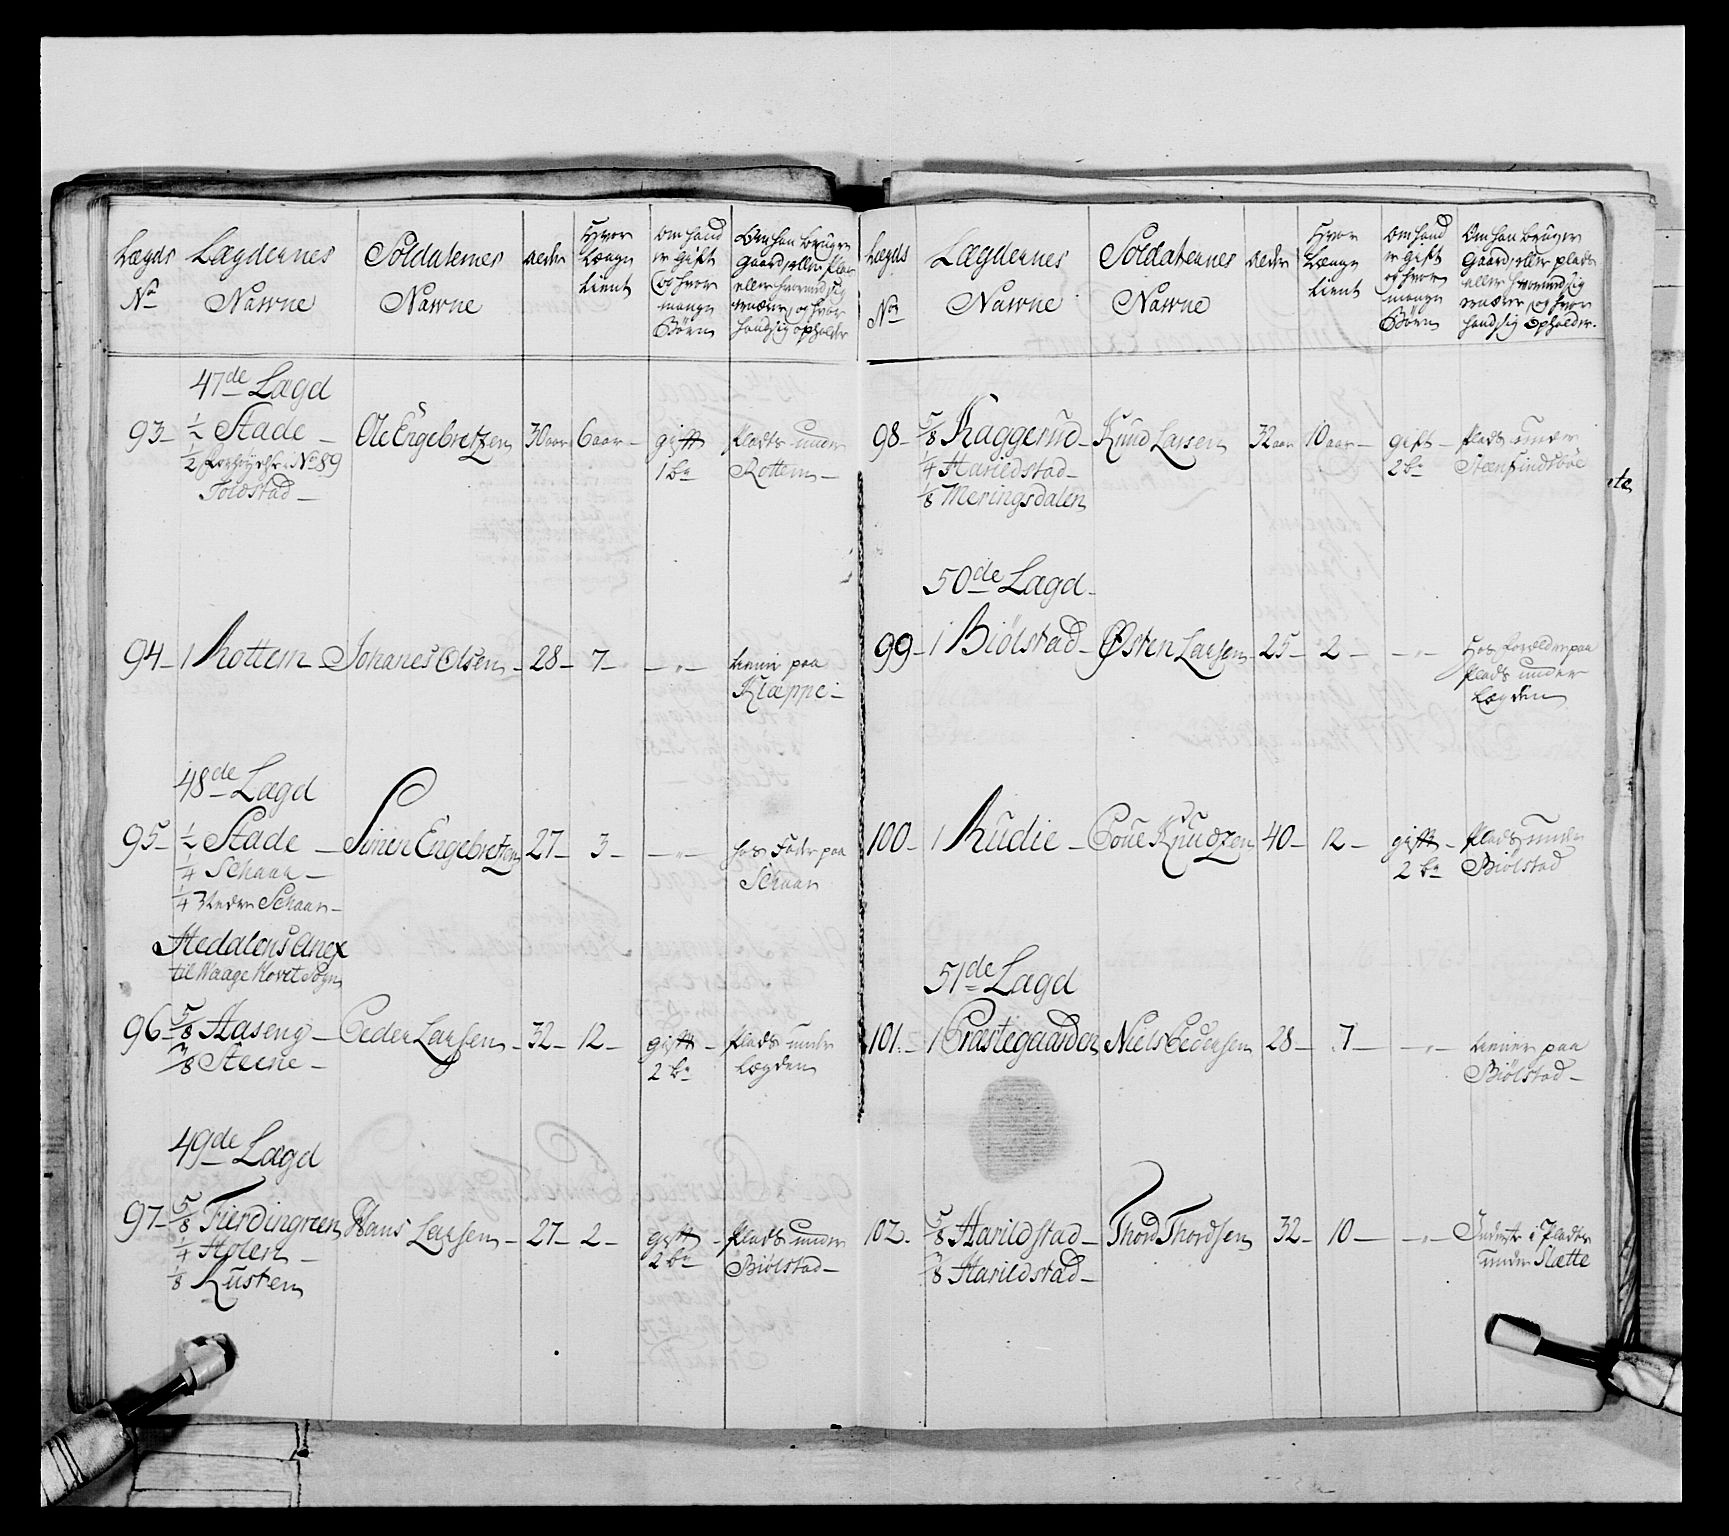 Lægds No
Lægdernes Nafne
Soldaternes Nafne
alder
Hvor længe tient
Om hand er gift og hvor mange Børn
Om han bruger Gaard, eller plads eller hvorved sig ernærer, og hvor hand sig opholder
47de Lægd
93 - 1/2 Stade - Ole Engebretzen 30 aar 6 aar - gift 1 bn Plads under Rottem -
1/2 No 89
Tolstad -
94 - 1 Rottem - Johanes Olsen - 28 - 7 - - " - tiener paa Klæppe -
48de Lægd
95 - 1/2 Stade - Simen Engebretzen 27 - 3 - - " - hos Fader paa Schaar
1/4 Schaar -
1/4 Neder Schaar -
Hedalens Anex
til Waage Hovet Sogn
96 - 5/8 Haseng - Peder Larsen - 32 - 12 - gift - 2 bn plads under Lægden
3/8 Steene -
49de Lægd
97 - 5/8 Fierdingreen Hans Larsen - 27 - 2 - gift - 2 bn plads under Biölstad -
1/4 Holen -
1/8 Rusten
Lægds No
Lægdernes Nafne
Soldaternes Nafne
alder
Hvor længe tient
Om hand er gift og hvor mange Børn
Om han bruger Gaard, eller plads eller hvorved sig ernærer, og hvor hand sig opholder.
98 - 5/8 Kaggerud - Knud Larsen 32 aar 10 aar - gift - 2 bn plads under
1/4 Harildstad -
1/8 Meringsdalen
50de Lægd -
99 - 1 Biölstad - Østen Larsen - 25 - 2 - - " - hos Forældre paa plads under Lægden
100 - 1 Rudie - Poul Knudzen 40 - 12 - gift - 2 bn plads under Biölstad
51de Lægd
101. - 1 Præstegaarden Niels Pedersen 28 - 7 - - " - tiener paa Biölstad -
102. 5/8 Harildstad - Thord Thordsen 32 - 10 - - " - Inderste i Pladse under Slette
3/8 Harildstad -